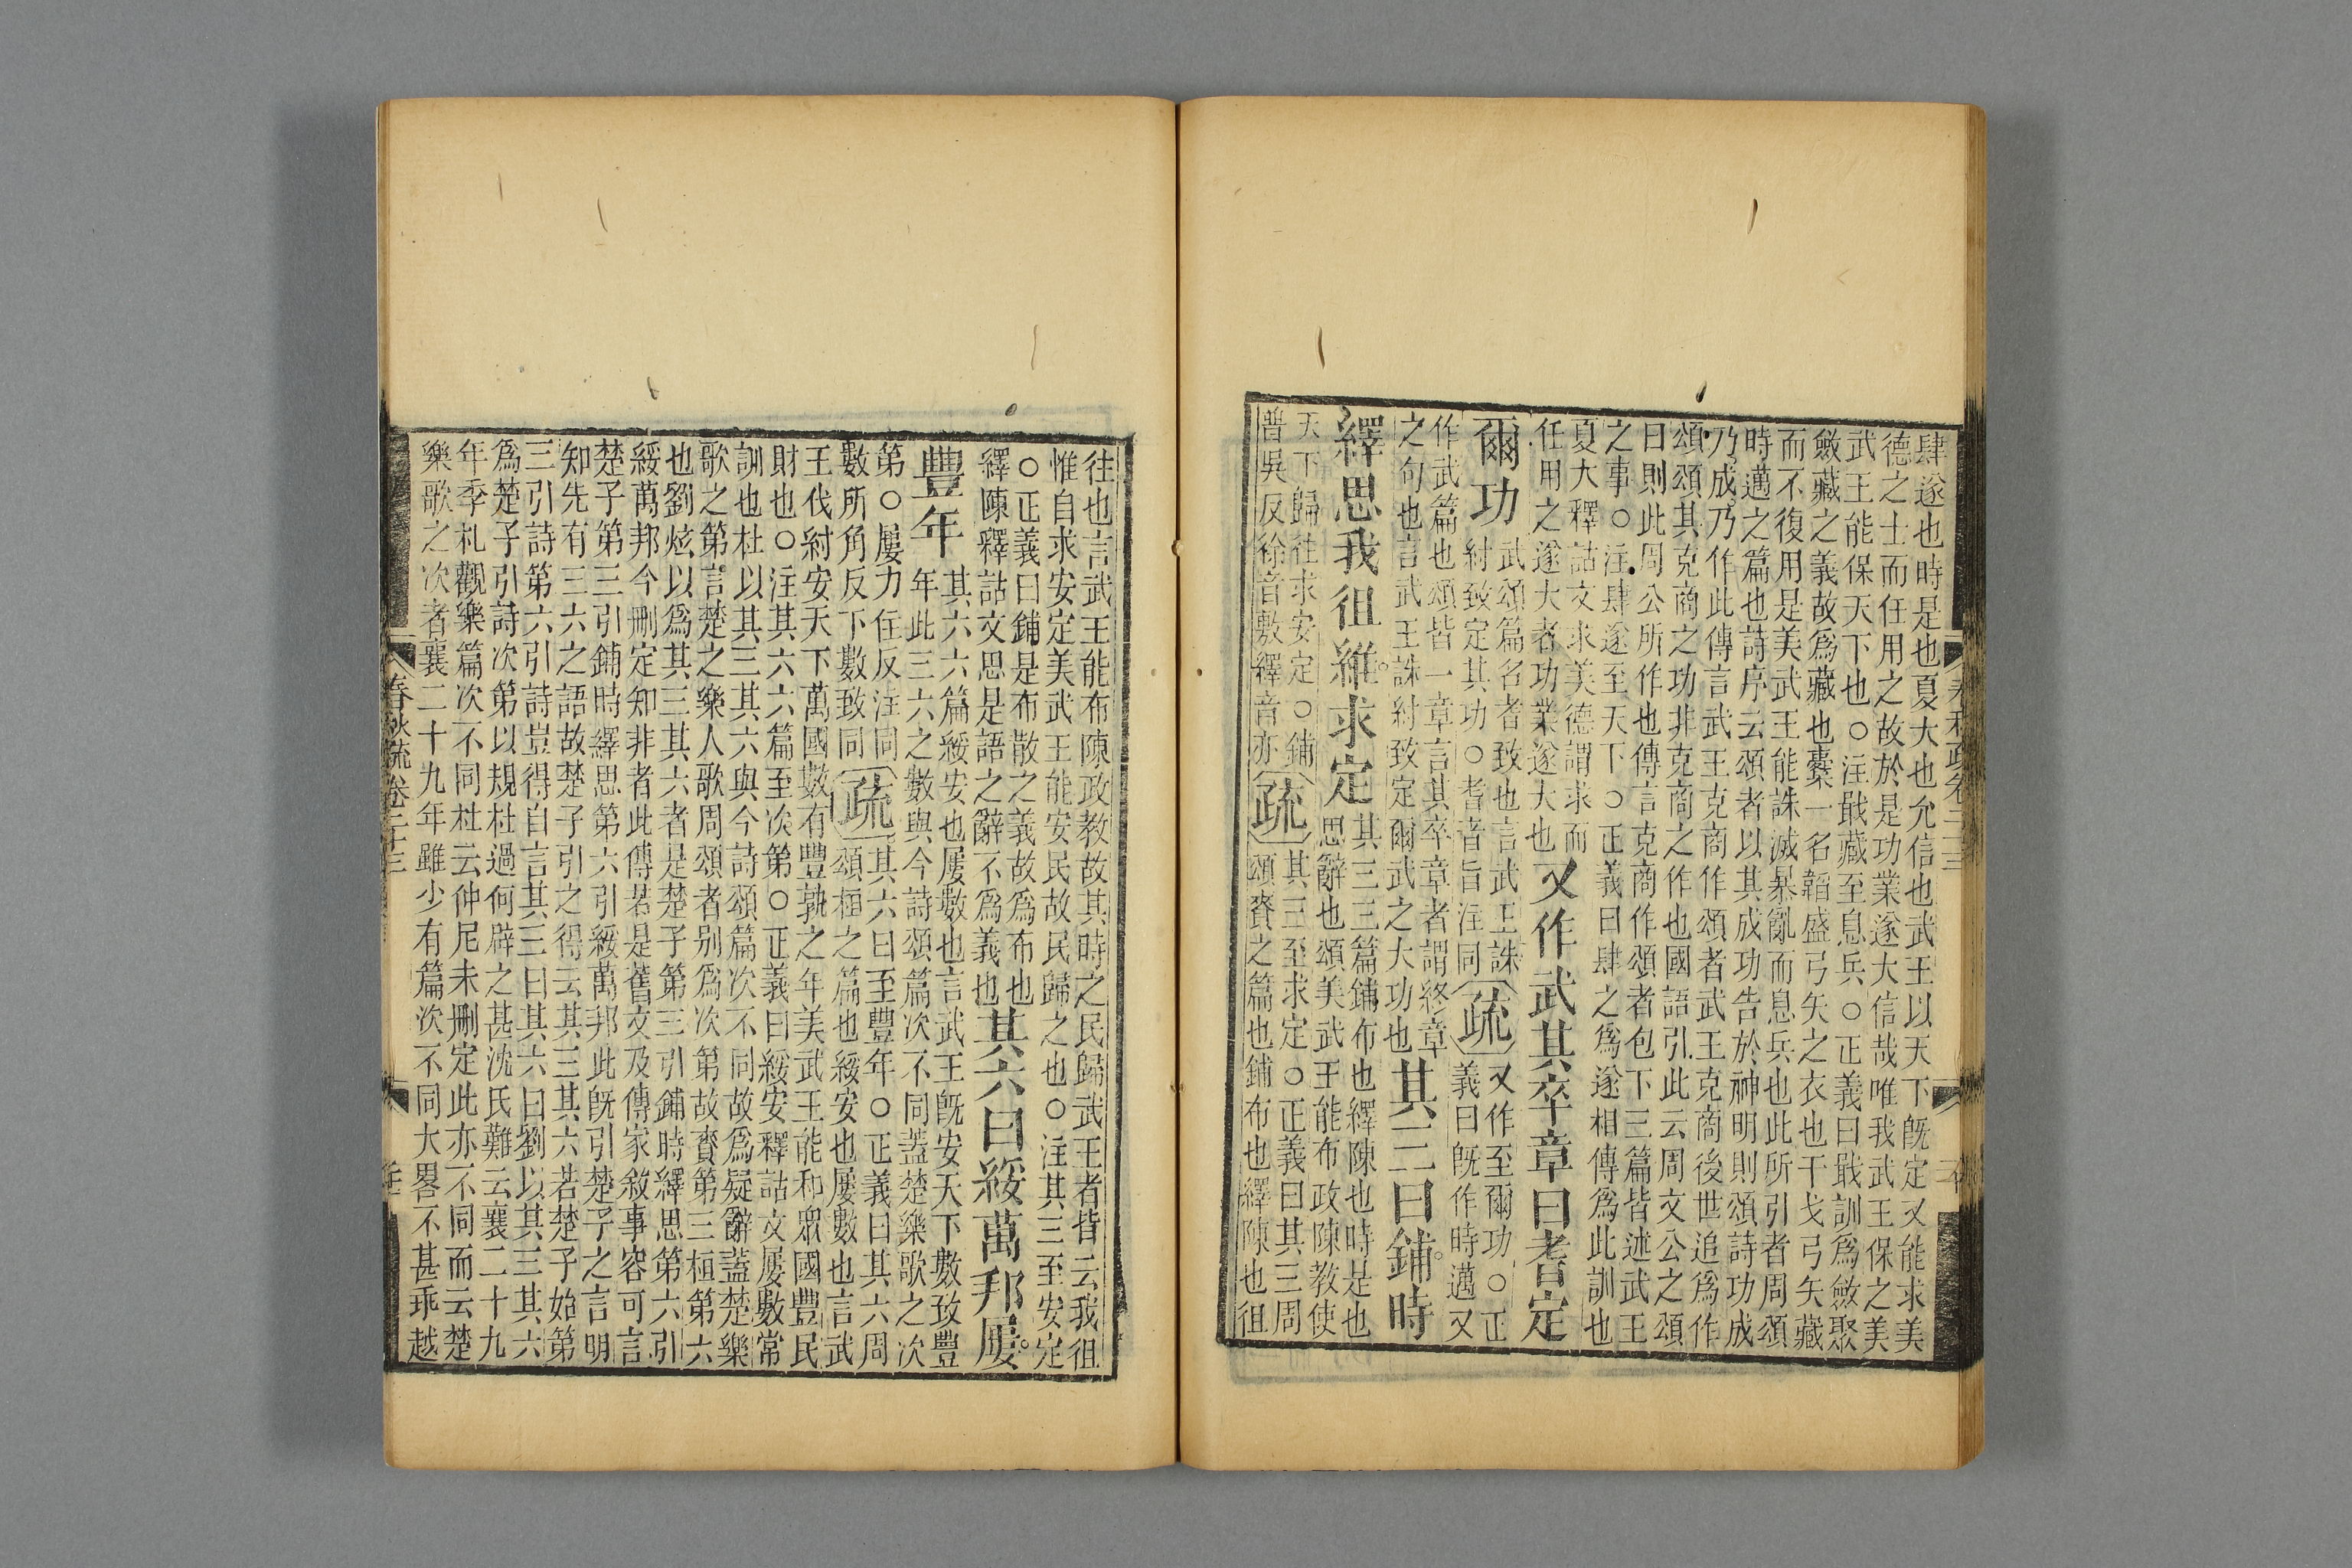 肆遂也時是也夏大也允信也武王以天下旣定又能求美
德之士而任用之故於是功業遂大信哉唯我武王保之美
武王能保天下也○注戢藏至息兵○正義曰戢訓爲斂聚
斂藏之義故爲藏也櫜一名韜盛弓矢之衣也干戈弓矢藏
而不復用是美武王能誅滅暴亂而息兵也此所引者周頌
時邁之篇也詩序云頌者以其成功告於神明則頌詩功成
乃成乃作此傳言武王克商作頌者武王克商後世追爲作
頌頌其克商之功非克商之作也國語引此云周文公之頌
曰則此周公所作也傳言克商作頌者包下三篇皆述武王
之事○注肆遂至天下○正義曰肆之爲遂相傳爲此訓也
夏大釋詁文求美德謂求而
任用之遂大者功業遂大也
又作武其卒章曰耆定
爾功
武頌篇名耆致也言武王誅
紂致定其功○耆音旨注同
疏
又作至爾功○正
義曰旣作時邁又
作武篇也頌皆一章言其卒章者謂終章
之句也言武王誅紂致定爾武之大功也
其三曰鋪時
繹思我徂維求定
其三三篇鋪布也繹陳也時是也
思辭也頌美武王能布政陳教使
天下歸往求安定○鋪
普吳反徐音敷繹音亦
疏
其三至求定○正義曰其三周
頌賚之篇也鋪布也繹陳也徂
往也言武王能布陳政教故其時之民歸武王者皆云我徂
惟自求安定美武王能安民故民歸之也○注其三至安定
○正義曰鋪是布散之義故爲布也
繹陳釋詁文思是語之辭不爲義也
其六曰綏萬邦屢
豐年
其六六篇綏安也屢數也言武王旣安天下數致豐
年此三六之數與今詩頌篇次不同蓋楚樂歌之次
第○屢力住反注同
數所角反下數致同
疏
其六曰至豐年○正義曰其六周
頌桓之篇也綏安也屢數也言武
王伐紂安天下萬國數有豐孰之年美武王能和眾國豐民
財也○注其六六篇至次第○正義曰綏安釋詁文屢數常
訓也杜以其三其六與今詩頌篇次不同故爲疑辭蓋楚樂
歌之第言楚之樂人歌周頌者别爲次第故賚第三桓第六
也劉炫以爲其三其六者是楚子第三引鋪時繹思第六引
綏萬邦今刪定知非者此傳若是舊文及傳家敘事容可言
楚子第三引鋪時繹思第六引綏萬邦此旣引楚子之言明
知先有三六之語故楚子引之得云其三其六若楚子始第
三引詩第六引詩豈得自言其三曰其六曰劉以其三其六
爲楚子引詩次第以規杜過何辟之甚沈氏難云襄二十九
年季札觀樂篇次不同杜云仲尼未刪定此亦不同而云楚
樂歌之次者襄二十九年雖少有篇次不同大畧不甚乖越
春秋疏卷二十三